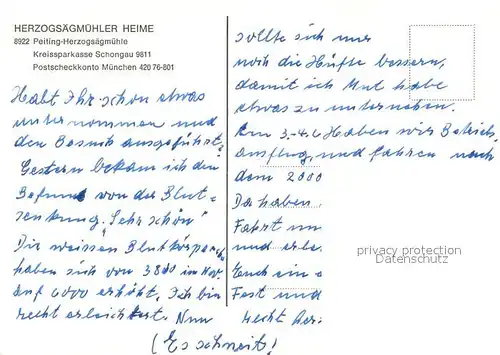 HERZOGSÄGMÜHLER HEIME
8922 Peiting-Herzogsägmühle
Kreissparkasse Schongau 9811
Postscheckkonto München 420 76-801
Habt Ihr schon etwas
unternommen und
den Besuch ausgeführt.
Gestern bekam ich den
Befund von der Blut-
senkung. "Sehr schön"
Die weissen Blutkörper
haben sich von 3800 im
auf 6000 erhöht. Ich bin
recht erleichtert. Nun
(Es schneit!
sollte sich nur
noch die Hüfte bessern,
damit ich Mut habe
etwas zu unternehmen.
3.-4.6 Haben wir Betriebs
ausflug, und fahren nach
dem 2000
Da haben
Fahrt
und
Euch ein
Fest und
recht
privacy protection
Datenschutz